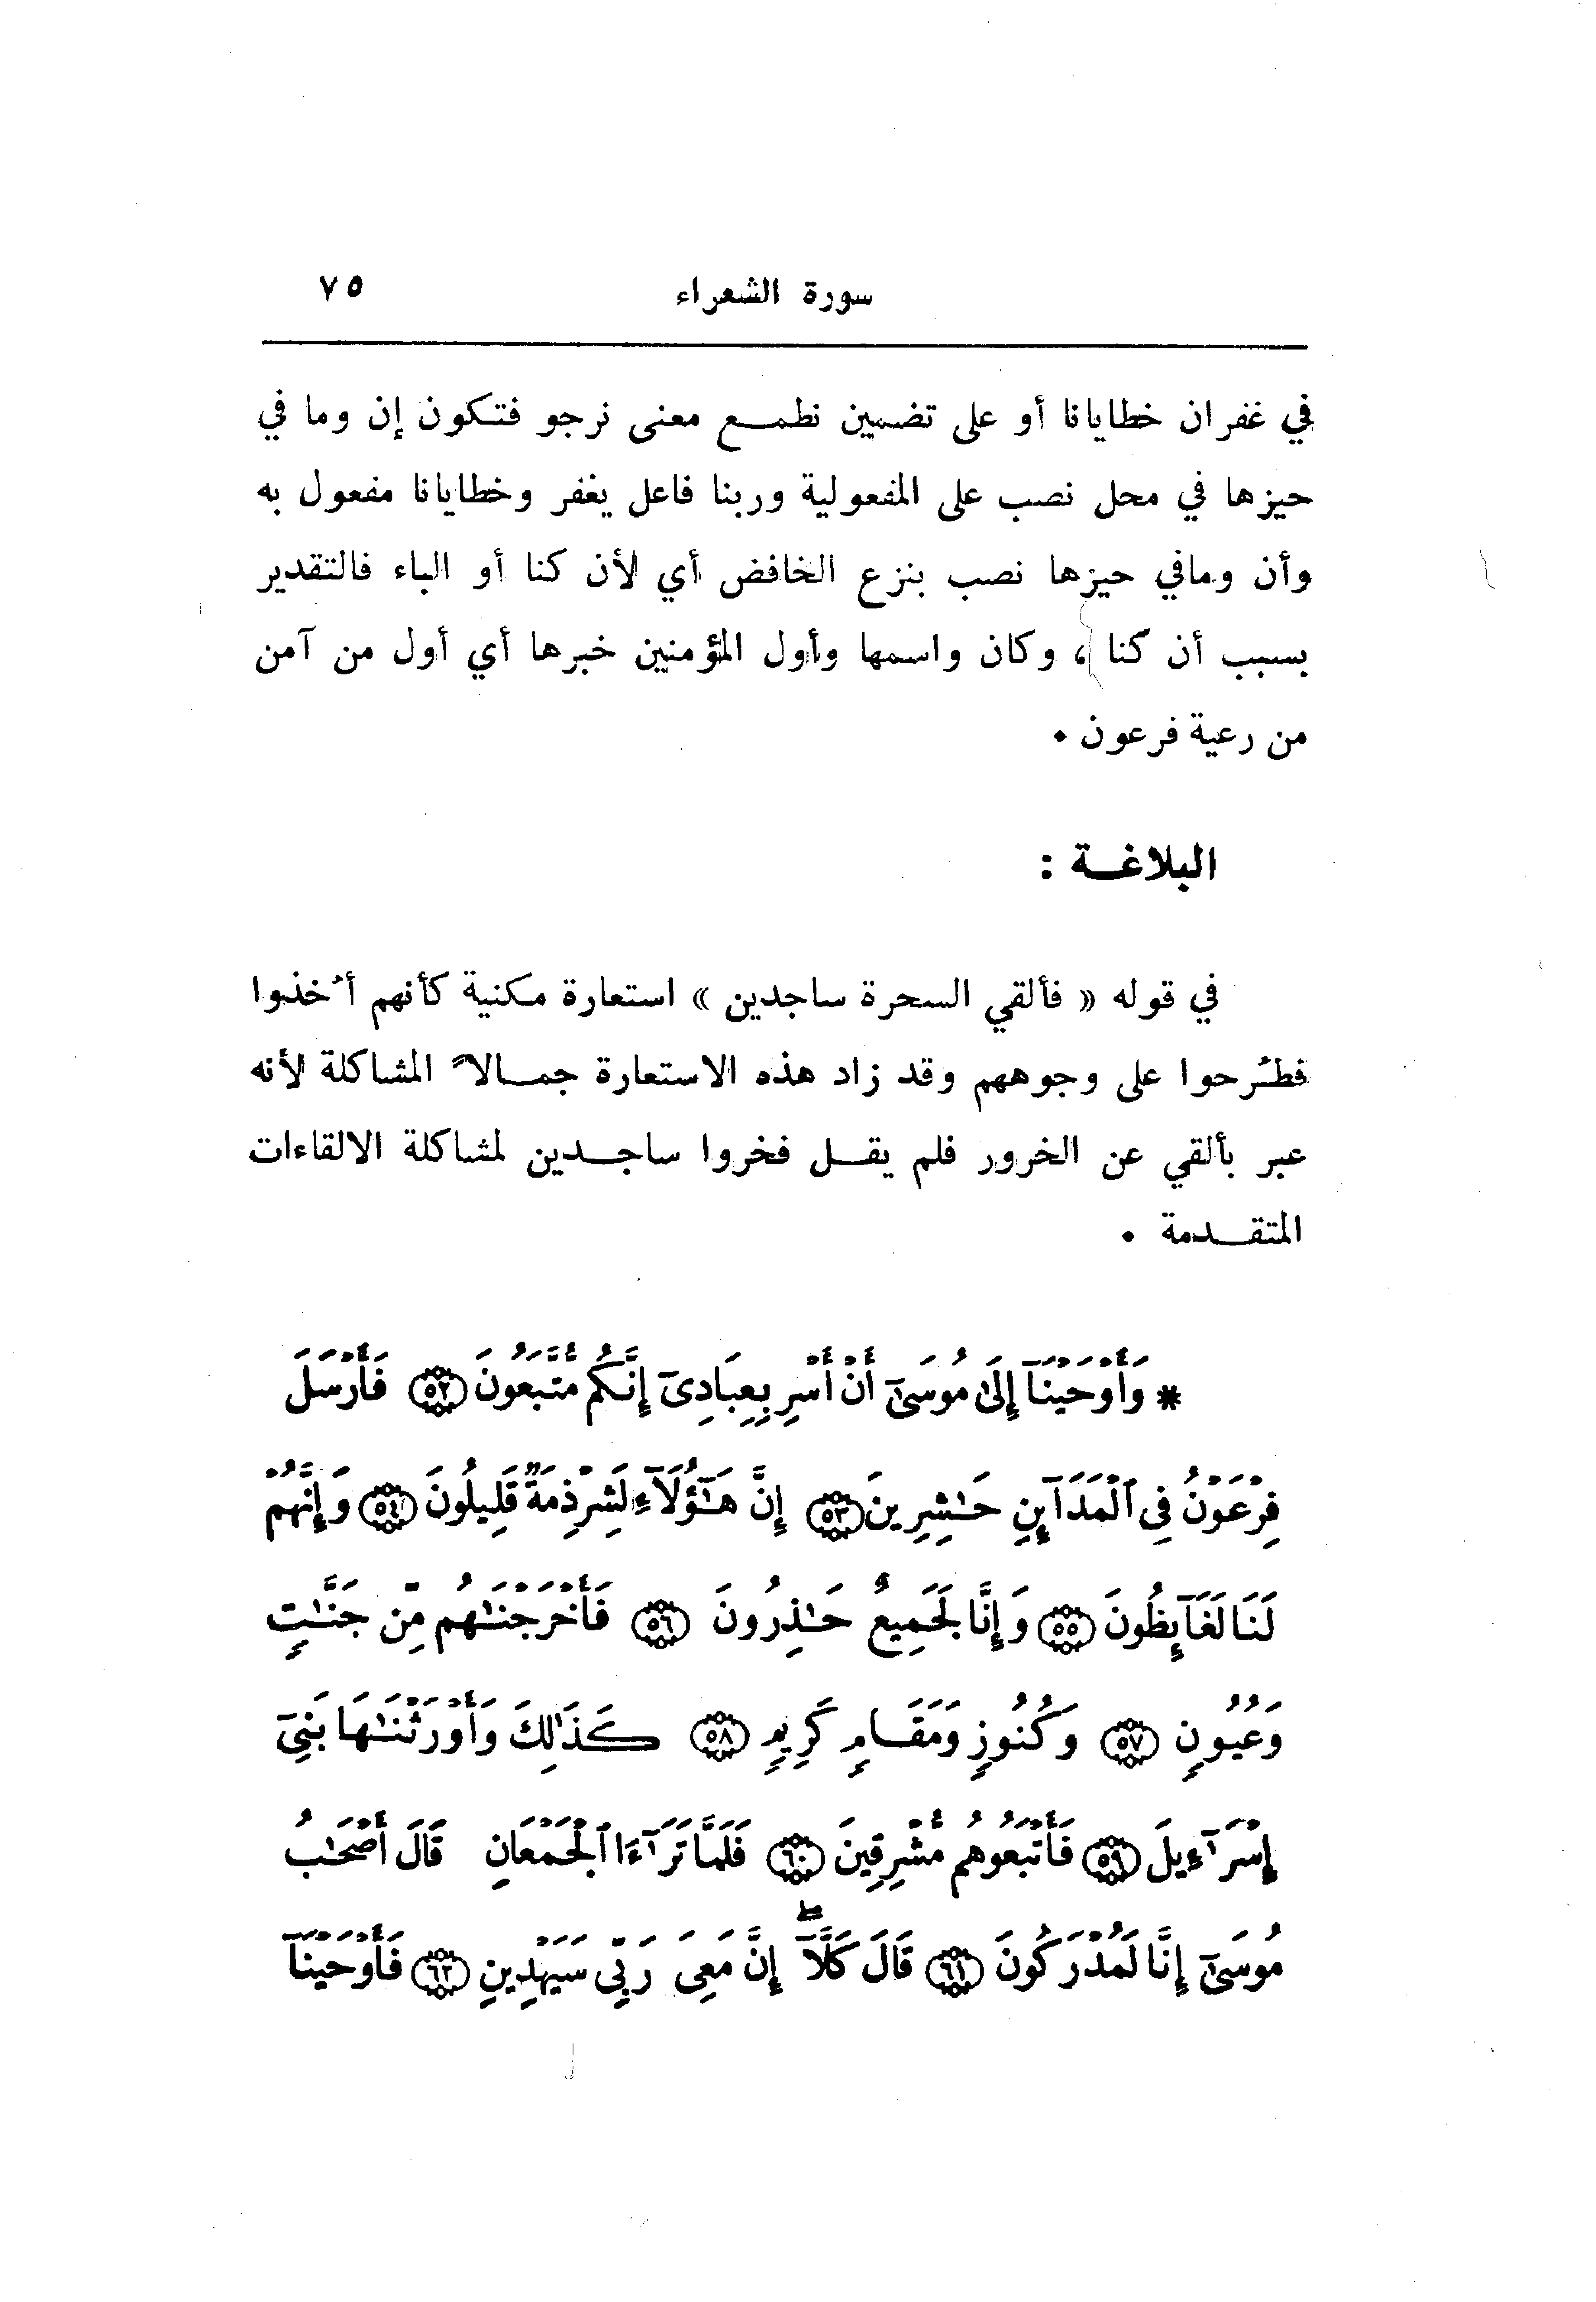 سورة الشعراء ٧٥
في غفران خطايانا أو على تضمين نطمع معنى نرجو فتكون إن وما في
حيزها في محل نصب على المفعولية وربنا فاعل يغفر وخطايانا مفعول به
وأن ومافي حيزها نصب بنزع الخافض أي لأن كنا أو الباء فالتقدير
بسبب أن كنا ، وكان واسمها وأول المؤمنين خبرها أي أول من آمن
من رعية فرعون .
البلاغة :
في قوله « فألقي السحرة ساجدين » استعارة مكنية كأنهم أُخذوا
فطُرحوا على وجوههم وقد زاد هذه الاستعارة جمالاً المشاكلة لأنه
عبر بألقي عن الخرور فلم يقل فخروا ساجدين لمشاكلة الالقاءات
المتقدمة .
* وَأَوْحَيْنَآ إِلَىٰ مُوسَىٰٓ أَنْ أَسْرِ بِعِبَادِىٓ إِنَّكُم مُّتَّبَعُونَ ٥٢ فَأَرْسَلَ
فِرْعَوْنُ فِى ٱلْمَدَآئِنِ حَٰشِرِينَ ٥٣ إِنَّ هَٰٓؤُلَآءِ لَشِرْذِمَةٌ قَلِيلُونَ ٥٤ وَإِنَّهُمْ
لَنَا لَغَآئِظُونَ ٥٥ وَإِنَّا لَجَمِيعٌ حَٰذِرُونَ ٥٦ فَأَخْرَجْنَٰهُم مِّن جَنَّٰتٍ
وَعُيُونٍ ٥٧ وَكُنُوزٍ وَمَقَامٍ كَرِيمٍ ٥٨ كَذَٰلِكَ وَأَوْرَثْنَٰهَا بَنِىٓ
إِسْرَٰٓءِيلَ ٥٩ فَأَتْبَعُوهُم مُّشْرِقِينَ ٦٠ فَلَمَّا تَرَٰٓءَا ٱلْجَمْعَانِ قَالَ أَصْحَٰبُ
مُوسَىٰٓ إِنَّا لَمُدْرَكُونَ ٦١ قَالَ كَلَّآ ۖ إِنَّ مَعِىَ رَبِّى سَيَهْدِينِ ٦٢ فَأَوْحَيْنَآ